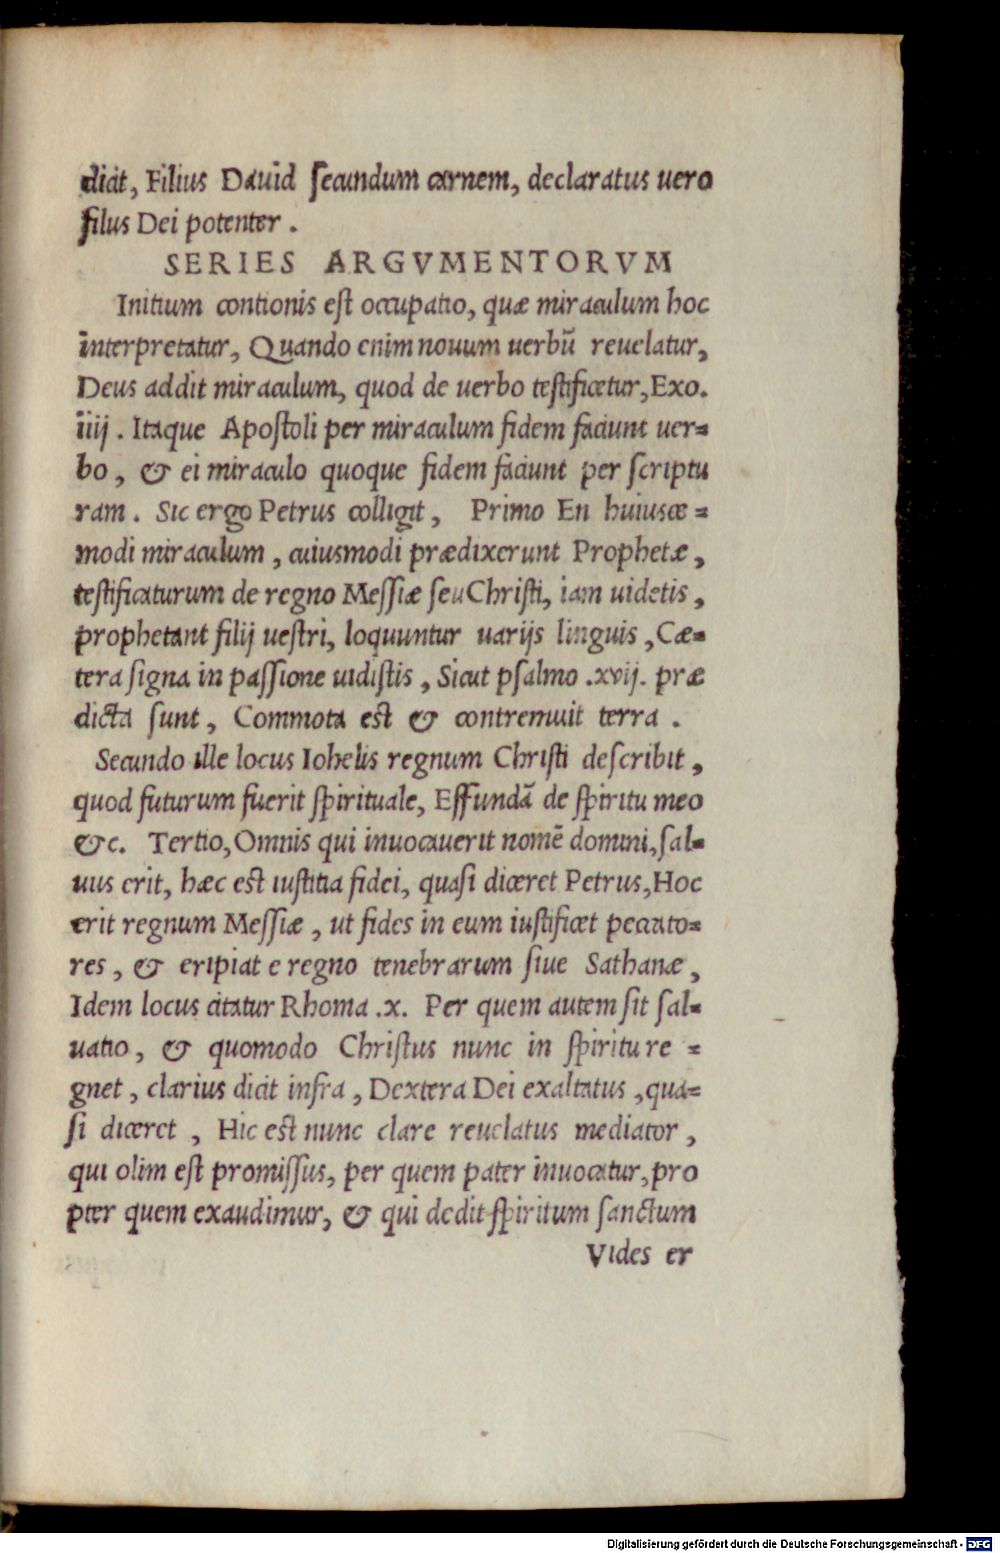 dicit, Filius Dauid secundum carnem, declaratus uero
filus Dei potenter.
SERIES ARGVMENTORVM
Initium contionis est occupatio, quæ miraculum hoc
interpretatur, Quando enim nouum uerbũ reuelatur,
Deus addit miraculum, quod de uerbo testificetur, Exo.
iiij. Itaque Apostoli per miraculum fidem faciunt uer=
bo, & ei miraculo quoque fidem faciunt per scriptu
ram. Sic ergo Petrus colligit, Primo En huiusce=
modi miraculum, cuiusmodi prædixerunt Prophetæ,
testificaturum de regno Messiæ seu Christi, iam uidetis,
prophetant filij uestri, loquuntur uarijs linguis, Cæ=
tera signa in passione uidistis, Sicut psalmo .xvij. præ
dicta sunt, Commota est & contremuit terra.
Secundo ille locus Iohelis regnum Christi describit,
quod futurum fuerit spirituale, Effundã de spiritu meo
&c. Tertio, Omnis qui inuocauerit nomẽ domini, sal=
uus erit, hæc est iustitia fidei, quasi diceret Petrus, Hoc
erit regnum Messiæ, ut fides in eum iustificet peccato=
res, & eripiat e regno tenebrarum siue Sathanæ,
Idem locus citatur Rhoma .x. Per quem autem sit sal=
uatio, & quomodo Christus nunc in spiritu re=
gnet, clarius dicit infra, Dextera Dei exaltatus, qua=
si diceret, Hic est nunc clare reuelatus mediator,
qui olim est promissus, per quem pater inuocatur, pro
pter quem exaudimur, & qui dedit spiritum sanctum
Vides er
Digitalisierung gefördert durch die Deutsche Forschungsgemeinschaft - DFG